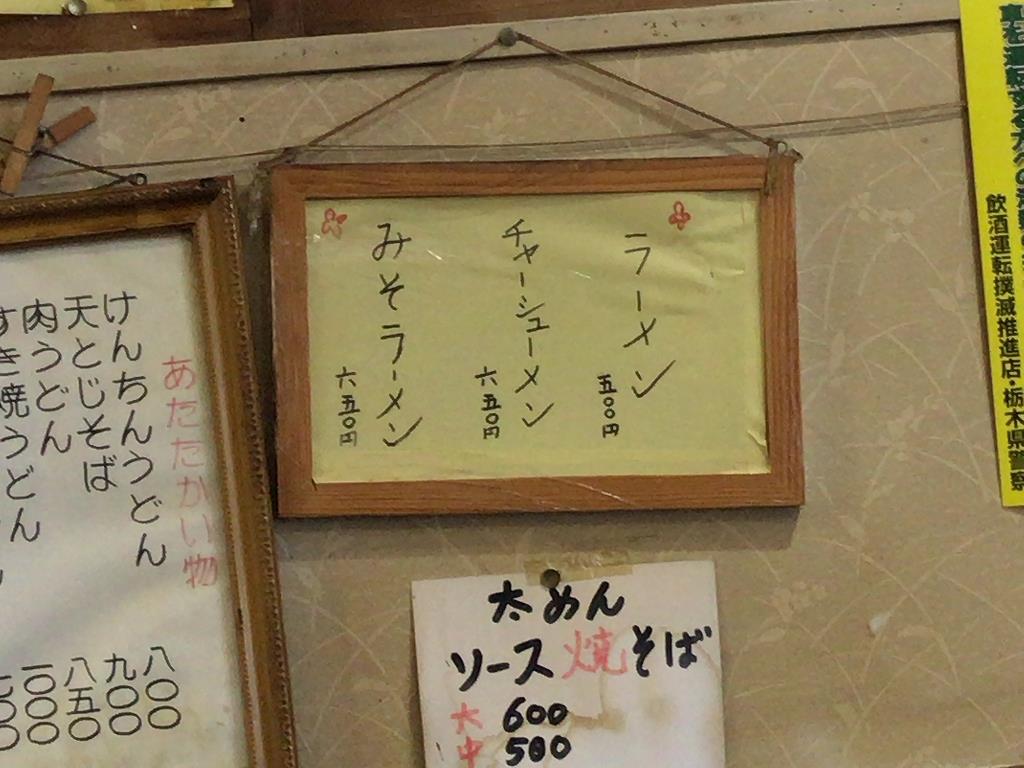 ラーメン 五〇〇円
チャーシューメン 六五〇円
みそラーメン 六五〇円
あたたかい物
けんちんうどん 八〇〇
天とじそば 九〇〇
肉うどん 八五〇
すき焼うどん 一〇〇〇
太めん
ソース焼そば
大 600
中 500
車を運転する方への酒類の
飲酒運転撲滅推進店・栃木県警察